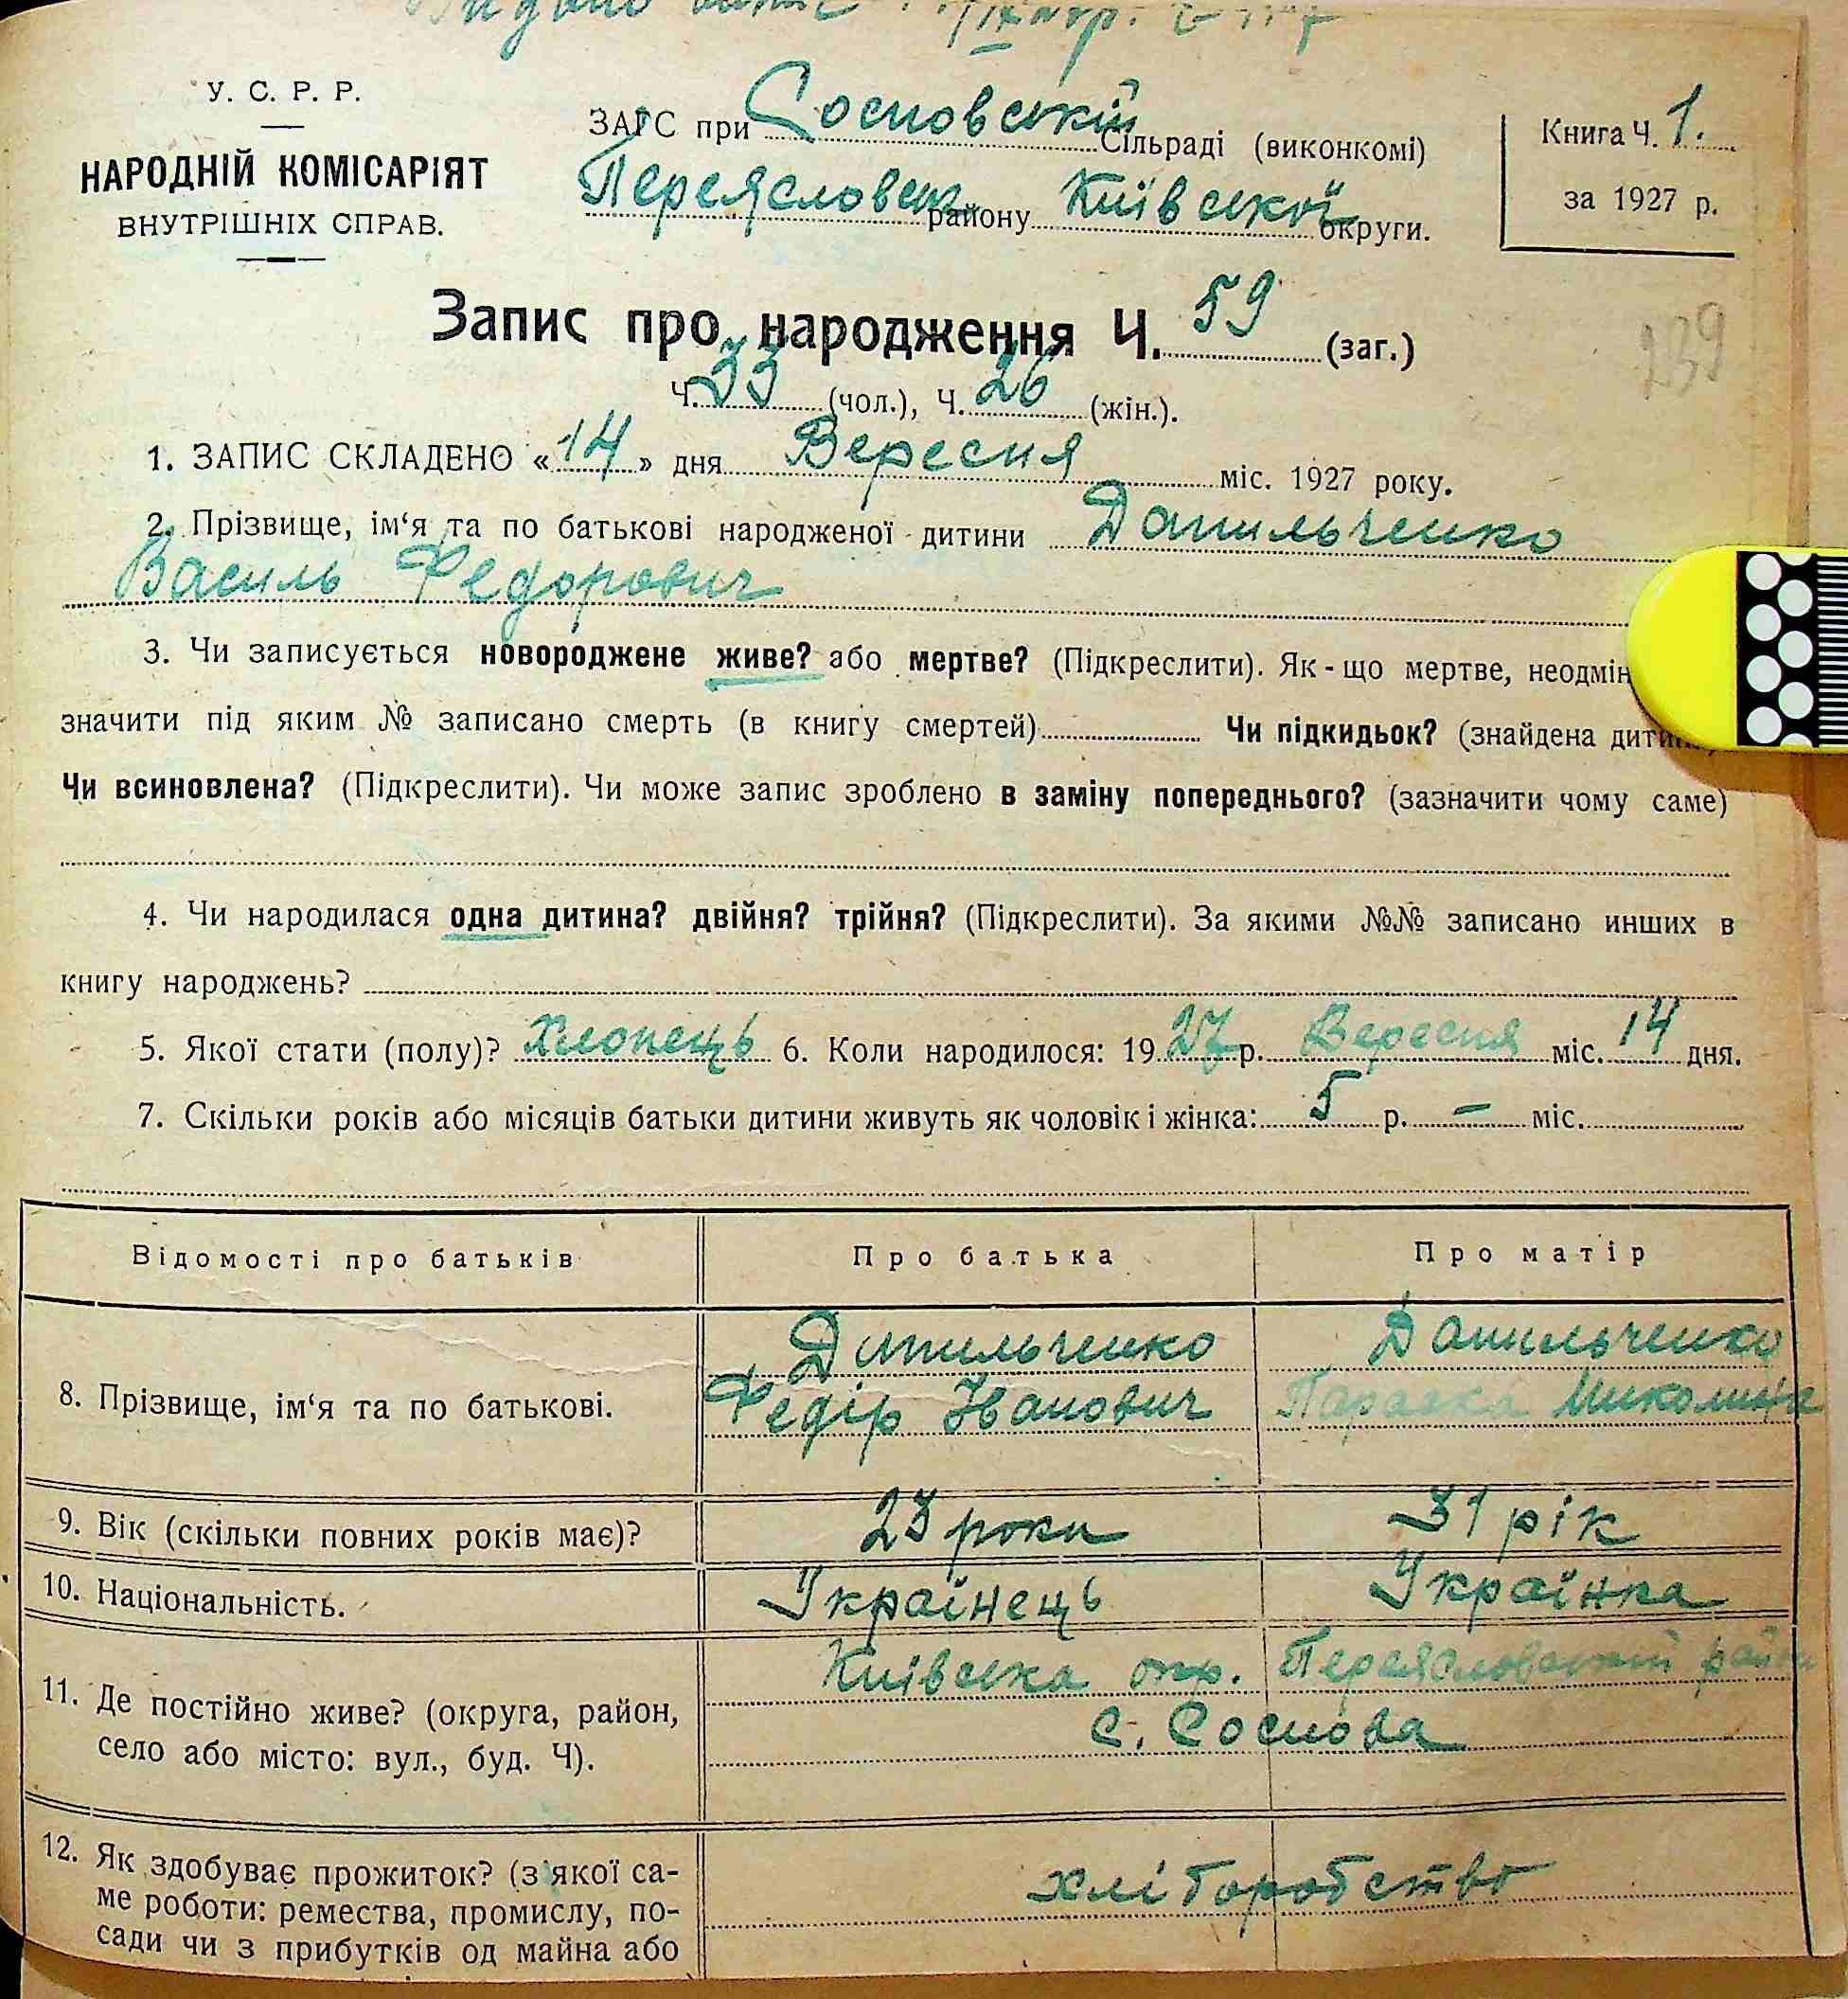 Видано
У. С. Р. Р.
НАРОДНІЙ КОМІСАРІЯТ
ВНУТРІШНІХ СПРАВ.
ЗАГС при Сосновській Сільраді (виконкомі)
Переясловськ району Київської округи.
Книга Ч. 1.
за 1927 р.
Запис про народження Ч. 59 (заг.)
239
Ч. 33 (чол.), Ч. 26 (жін.).
1. ЗАПИС СКЛАДЕНО «14» дня Вересня міс. 1927 року.
2. Прізвище, ім‘я та по батькові народженої дитини Данильченко
Василь Федорович
3. Чи записується новороджене живе? або мертве? (Підкреслити). Як-що мертве, неодмін
значити під яким № записано смерть (в книгу смертей) Чи підкидьок? (знайдена дитина)
Чи всиновлена? (Підкреслити). Чи може запис зроблено в заміну попереднього? (зазначити чому саме)
4. Чи народилася одна дитина? двійня? трійня? (Підкреслити). За якими №№ записано инших в
книгу народжень?
5. Якої стати (полу)? Хлопець 6. Коли народилося: 1927 р. Вересня міс. 14 дня.
7. Скільки років або місяців батьки дитини живуть як чоловік і жінка: 5 р. – міс.
Відомості про батьків Про батька Про матір
Данильченко Данильченко
8. Прізвище, ім‘я та по батькові. Федір Іванович Параска Миколаївна
9. Вік (скільки повних років має)? 23 роки 31 рік
10. Національність. Українець Українка
Київська окр. Переясловський район
11. Де постійно живе? (округа, район,
с. Соснова
село або місто: вул., буд. Ч).
12. Як здобуває прожиток? (з якої са-
хліборобство
ме роботи: ремества, промислу, по-
сади чи з прибутків од майна або